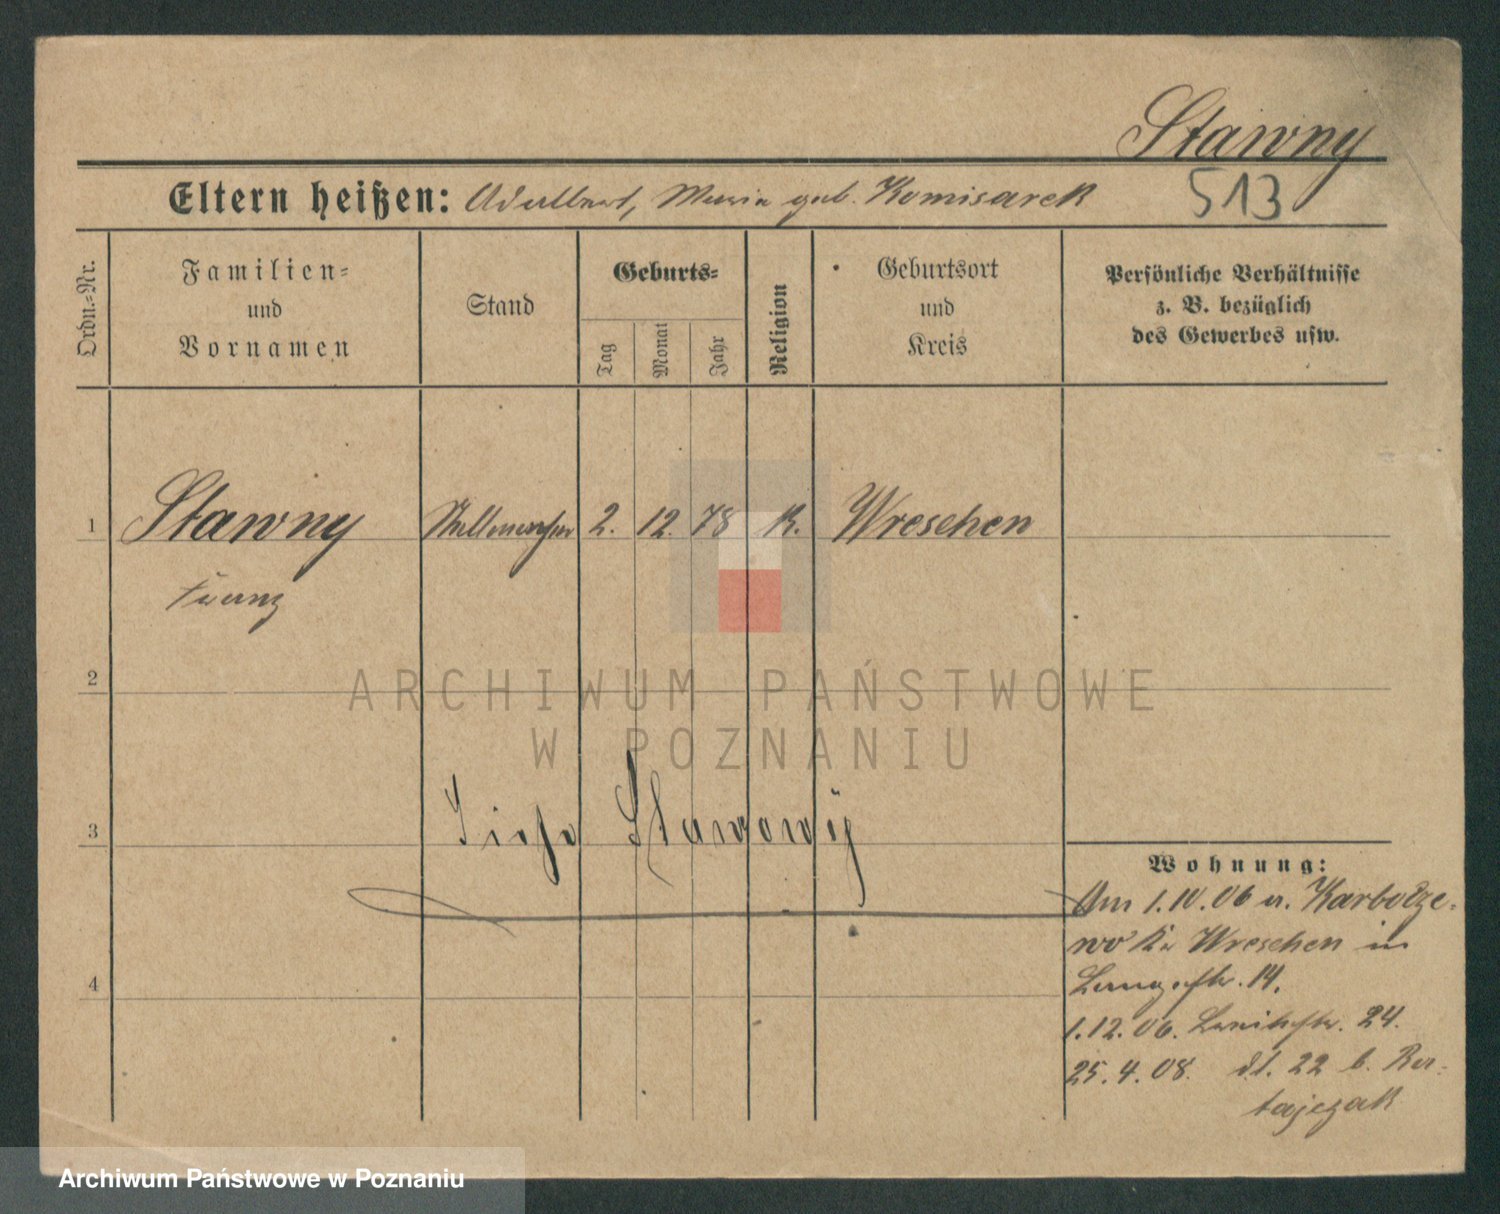 Stawny
Eltern heißen: Adalbert, Maria geb. Komisarek 513
Ordn.-Nr.
Familien-
und
Vornamen
Stand
Geburts-
Tag
Monat
Jahr
Religion
Geburtsort
und
Kreis
Persönliche Verhältnisse
z. B. bezüglich
des Gewerbes usw.
1 Stawny Stellmacher 2. 12. 78 K. Wreschen
Franz
2
ARCHIWUM PAŃSTWOWE
W POZNANIU
3
Siehe Stawowÿ
Wohnung:
Am 1.10.06 a. Karbodze-
wo Kr Wreschen in
Langestr. 14.
4
1.12.06. 24.
25.4.08. dt. 22 b. Ra-
tajczak
Archiwum Państwowe w Poznaniu